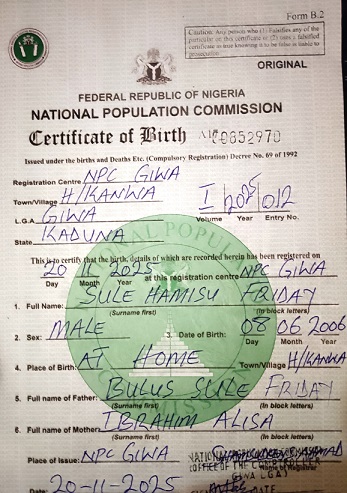 Form B.2
Caution: Any person who (1) Falsifies any of the
particular on this certificate or (2) uses a falsified
certificate as true knowing it to be false is liable to
prosecution
ORIGINAL
FEDERAL REPUBLIC OF NIGERIA
NATIONAL POPULATION COMMISSION
Certificate of Birth
Issued under the births and Deaths Etc. (Compulsory Registration) Decree No. 69 of 1992
Registration Centre NPC GIWA
Town/Village H/KANWA
I 2025 012
L.G.A GIWA
Volume Year Entry No.
State KADUNA
This is to certify that the birth, details of which are recorded herein has been registered on
20 11 2025 at this registration centre NPC GIWA
Day Month Year
1. Full Name: SULE HAMISU FRIDAY
(Surname first) (In block letters)
2. Sex: MALE 3. Date of Birth: 08 06 2006
Day Month Year
4. Place of Birth: AT HOME Town/Village H/KANWA
5. Full name of Father: BULUS SULE FRIDAY
(Surname first) (In block letters)
6. Full name of Mother: IBRAHIM ALISA
(Surname first) (In block letters)
Place of Issue: NPC GIWA
Name of Registrar
20-11-2025